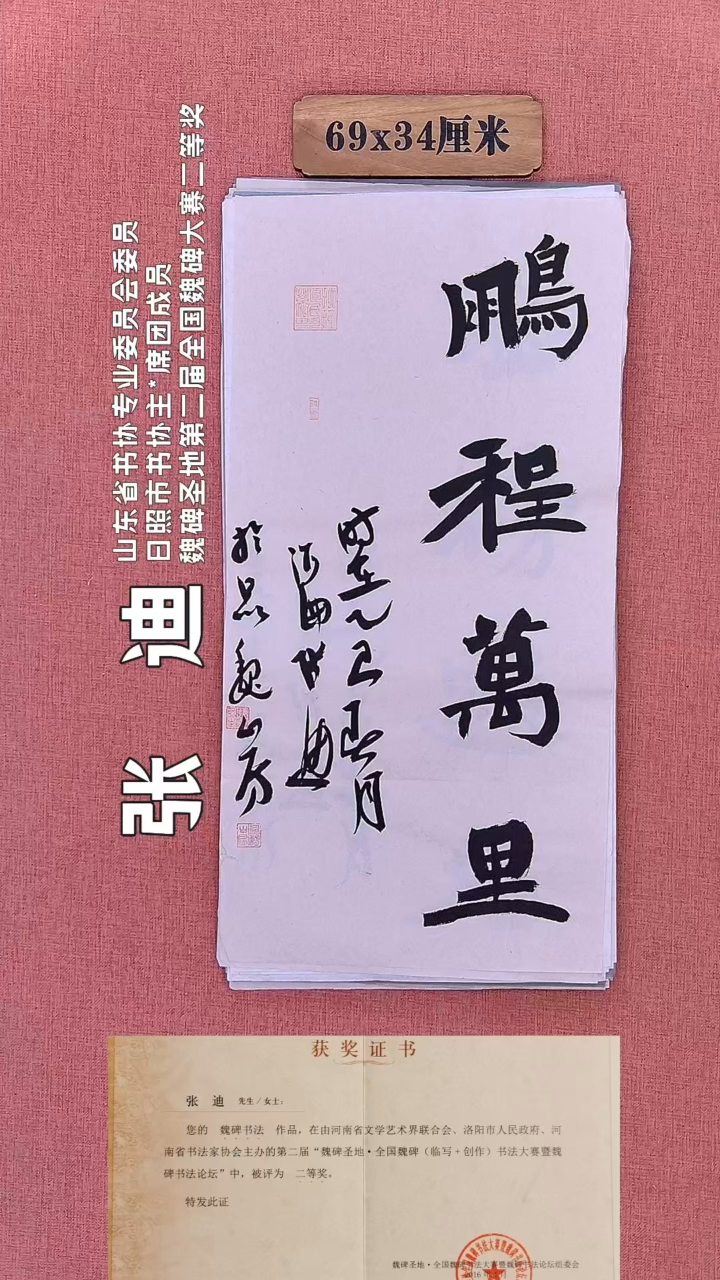 69x34厘米
鵬程萬里
时在乙巳春月
张迪
山东省书协专业委员会委员
日照市书协主*席团成员
魏碑圣地第二届全国魏碑大赛二等奖
获奖证书
张 迪 先生/女士:
您的 魏碑书法 作品，在由河南省文学艺术界联合会、洛阳市人民政府、河
南省书法家协会主办的第二届“魏碑圣地·全国魏碑（临写+创作）书法大赛暨魏
碑书法论坛”中，被评为 二等奖。
特发此证
魏碑圣地·全国魏碑书法大赛暨魏碑书法论坛组委会